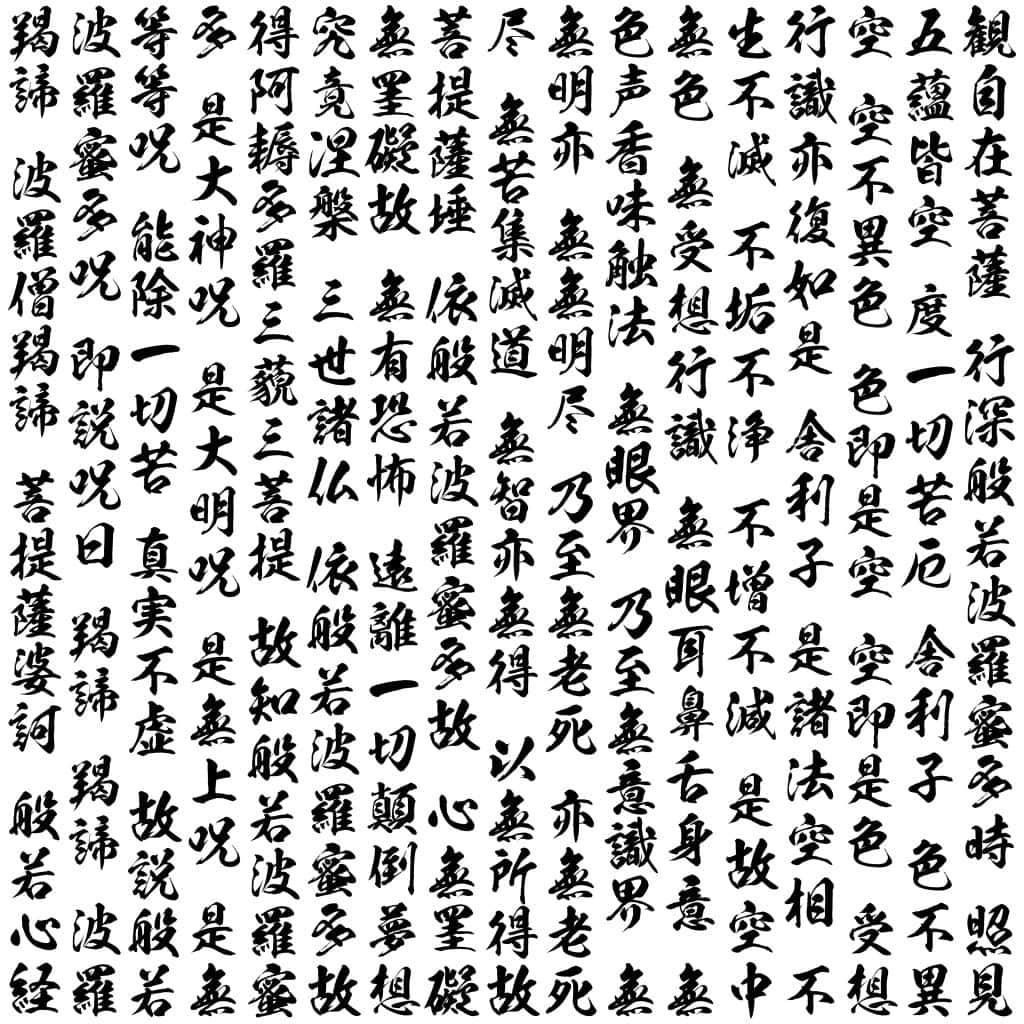 観自在菩薩 行深般若波羅蜜多時 照見
五蘊皆空 度一切苦厄 舎利子 色不異
空 空不異色 色即是空 空即是色 受想
行識亦復如是 舎利子 是諸法空相 不
生不滅 不垢不浄 不増不減 是故空中
無色 無受想行識 無眼耳鼻舌身意 無
色声香味触法 無眼界 乃至無意識界 無
無明亦 無無明尽 乃至無老死 亦無老死
尽 無苦集滅道 無智亦無得 以無所得故
菩提薩埵 依般若波羅蜜多故 心無罣礙
無罣礙故 無有恐怖 遠離一切顛倒夢想
究竟涅槃 三世諸仏 依般若波羅蜜多故
得阿耨多羅三藐三菩提 故知般若波羅蜜
多 是大神呪 是大明呪 是無上呪 是無
等等呪 能除一切苦 真実不虚 故説般若
波羅蜜多呪 即説呪曰 羯諦 羯諦 波羅
羯諦 波羅僧羯諦 菩提薩婆訶 般若心経